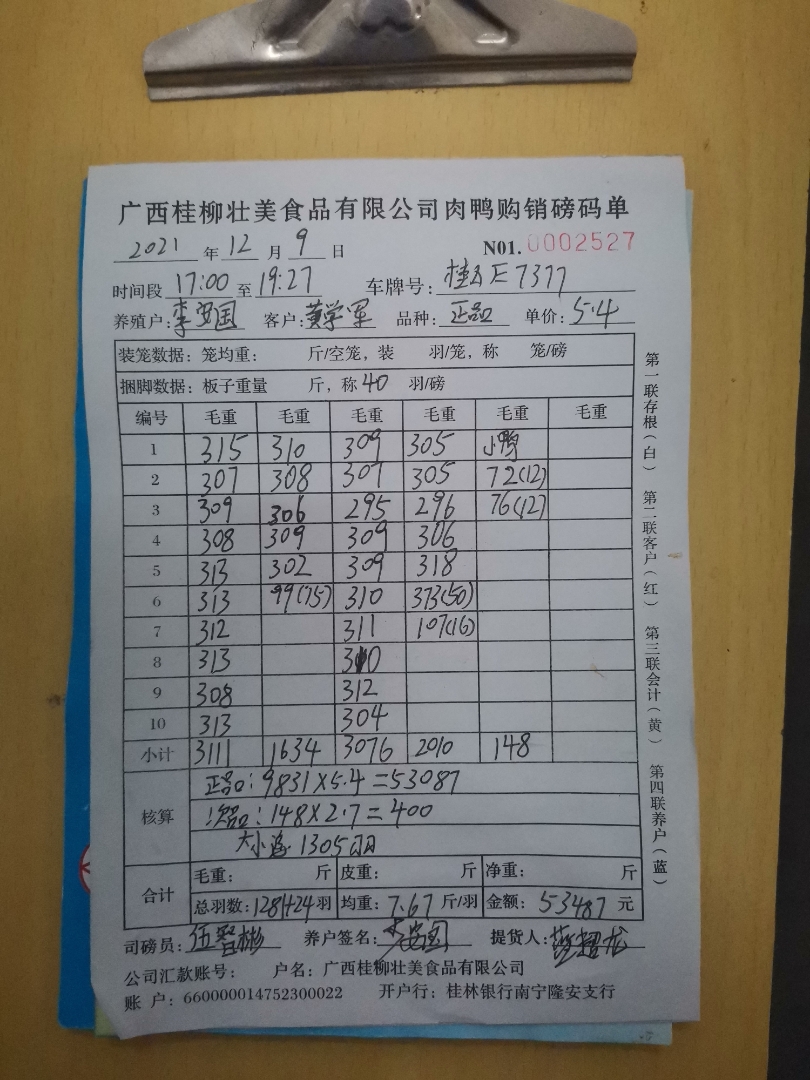 广西桂柳壮美食品有限公司肉鸭购销磅码单
2021 年 12 月 9 日 N01. 0002527
时间段 17:00 至 19:27 车牌号: 桂 E7377
养殖户: 李安国 客户: 黄学军 品种: 正品 单价: 5.4
装笼数据: 笼均重: 斤/空笼, 装 羽/笼, 称 笼/磅
捆脚数据: 板子重量 斤, 称 40 羽/磅
编号 毛重 毛重 毛重 毛重 毛重 毛重
1 315 310 309 305 小鸭
2 307 308 307 305 72(12)
3 309 306 295 296 76(12)
4 308 309 309 306
5 313 302 309 318
6 313 99(15) 310 373(50)
7 312 311 107(16)
8 313 310
9 308 312
10 313 304
小计 3111 1634 3076 2010 148
核算
正品: 9831×5.4=53087
次品: 148×2.7=400
大小 1305羽
合计
毛重: 斤 皮重: 斤 净重: 斤
总羽数: 1281+24 羽 均重: 7.67 斤/羽 金额: 53487 元
司磅员: 伍智彬 养户签名: 李安国 提货人:
公司汇款账号: 户名: 广西桂柳壮美食品有限公司
账 户: 660000014752300022 开户行: 桂林银行南宁隆安支行
第一联存根(白) 第二联客户(红) 第三联会计(黄) 第四联养户(蓝)